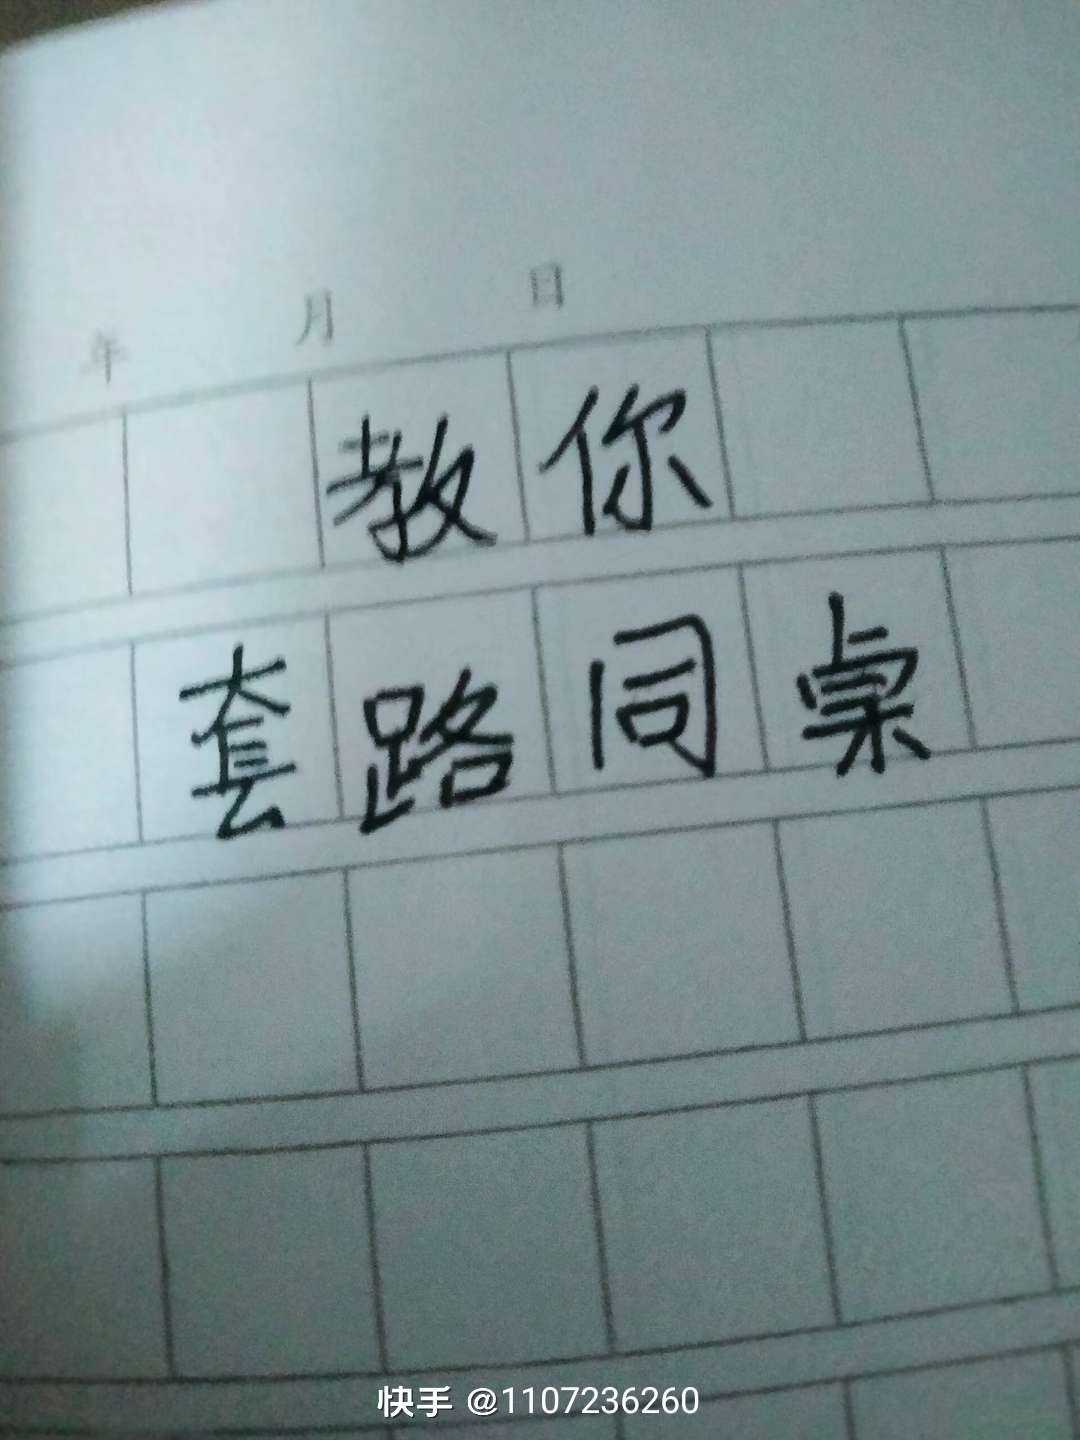 年 月 日
教你
套路同桌
快手 @1107236260